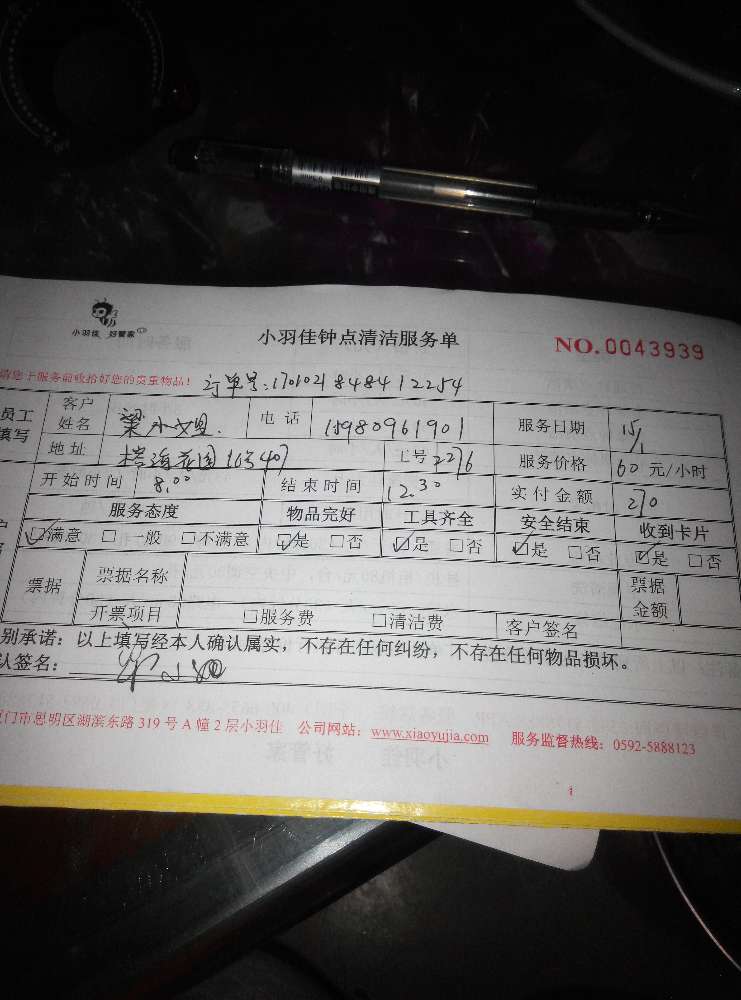 小羽佳 好管家
小羽佳钟点清洁服务单
NO.0043939
请您于服务前收拾好您的贵重物品！ 订单号:1701021848412254
员工填写 客户姓名 梁小姐. 电话 15980961901 服务日期 15/1
地址 163407 工号 2276 服务价格 60 元/小时
开始时间 8.00 结束时间 12.30 实付金额 270
服务态度 物品完好 工具齐全 安全结束 收到卡片
☑满意 □一般 □不满意 ☑是 □否 ☑是 □否 ☑是 □否 ☑是 □否
票据 票据名称 票据金额
开票项目 □服务费 □清洁费 客户签名
别承诺：以上填写经本人确认属实，不存在任何纠纷，不存在任何物品损坏。
认签名：
厦门市思明区湖滨东路 319 号 A 幢 2 层小羽佳 公司网站：www.xiaoyujia.com 服务监督热线：0592-5888123
1